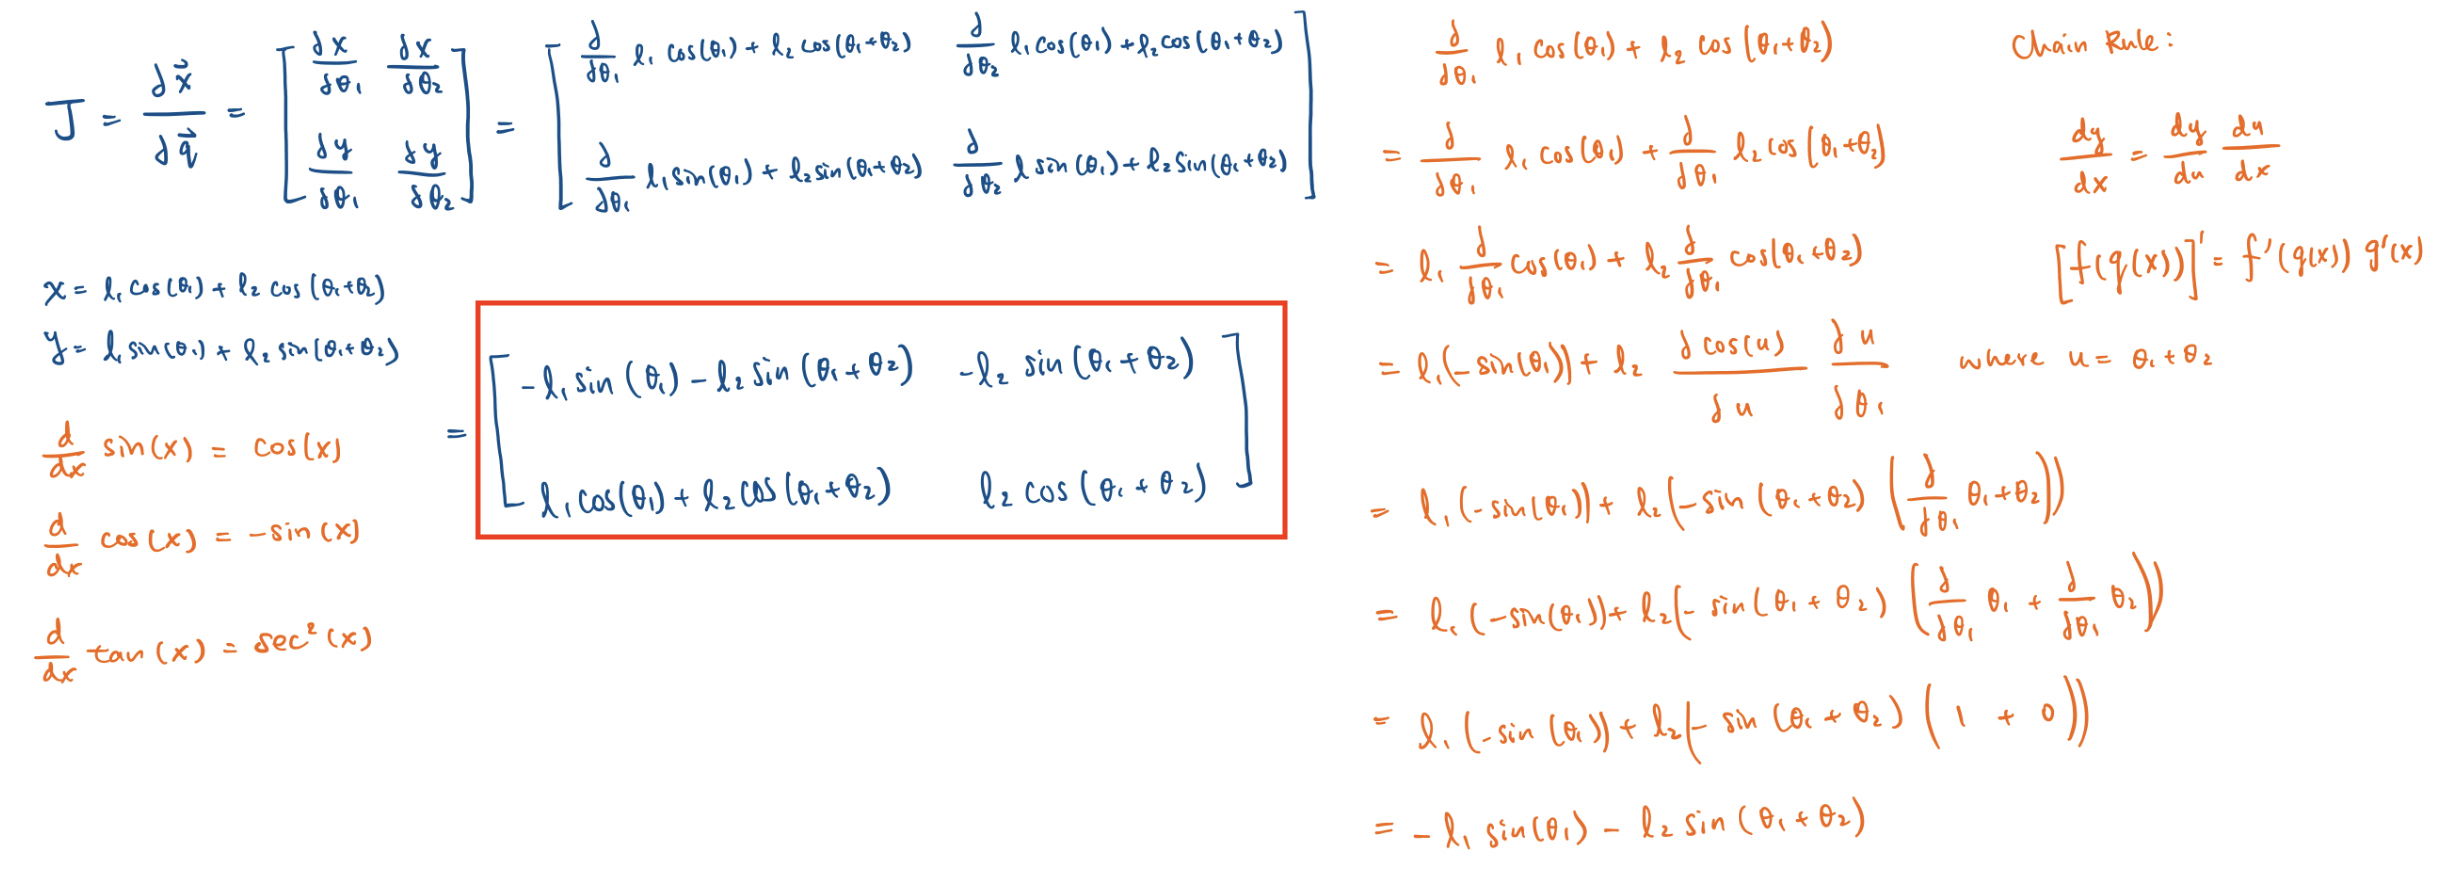 J = ∂x⃗/∂q⃗ = [ ∂x/∂θ₁ ∂x/∂θ₂ ; ∂y/∂θ₁ ∂y/∂θ₂ ] = [ ∂/∂θ₁ l₁ cos(θ₁) + l₂ cos(θ₁+θ₂) ∂/∂θ₂ l₁ cos(θ₁) + l₂ cos(θ₁+θ₂) ; ∂/∂θ₁ l₁ sin(θ₁) + l₂ sin(θ₁+θ₂) ∂/∂θ₂ l sin(θ₁) + l₂ sin(θ₁+θ₂) ]
x = l₁ cos(θ₁) + l₂ cos(θ₁+θ₂)
y = l₁ sin(θ₁) + l₂ sin(θ₁+θ₂)
= [ -l₁ sin(θ₁) - l₂ sin(θ₁+θ₂) -l₂ sin(θ₁+θ₂) ; l₁ cos(θ₁) + l₂ cos(θ₁+θ₂) l₂ cos(θ₁+θ₂) ]
d/dx sin(x) = cos(x)
d/dx cos(x) = -sin(x)
d/dx tan(x) = sec²(x)
∂/∂θ₁ l₁ cos(θ₁) + l₂ cos(θ₁+θ₂)
= ∂/∂θ₁ l₁ cos(θ₁) + ∂/∂θ₁ l₂ cos(θ₁+θ₂)
= l₁ ∂/∂θ₁ cos(θ₁) + l₂ ∂/∂θ₁ cos(θ₁+θ₂)
= l₁(-sin(θ₁)) + l₂ ∂cos(u)/∂u ∂u/∂θ₁ where u = θ₁+θ₂
= l₁(-sin(θ₁)) + l₂(-sin(θ₁+θ₂) (∂/∂θ₁ θ₁+θ₂))
= l₁(-sin(θ₁)) + l₂(-sin(θ₁+θ₂) (∂/∂θ₁ θ₁ + ∂/∂θ₁ θ₂))
= l₁(-sin(θ₁)) + l₂(-sin(θ₁+θ₂) (1 + 0))
= -l₁ sin(θ₁) - l₂ sin(θ₁+θ₂)
Chain Rule:
dy/dx = dy/du du/dx
[f(g(x))]' = f'(g(x)) g'(x)